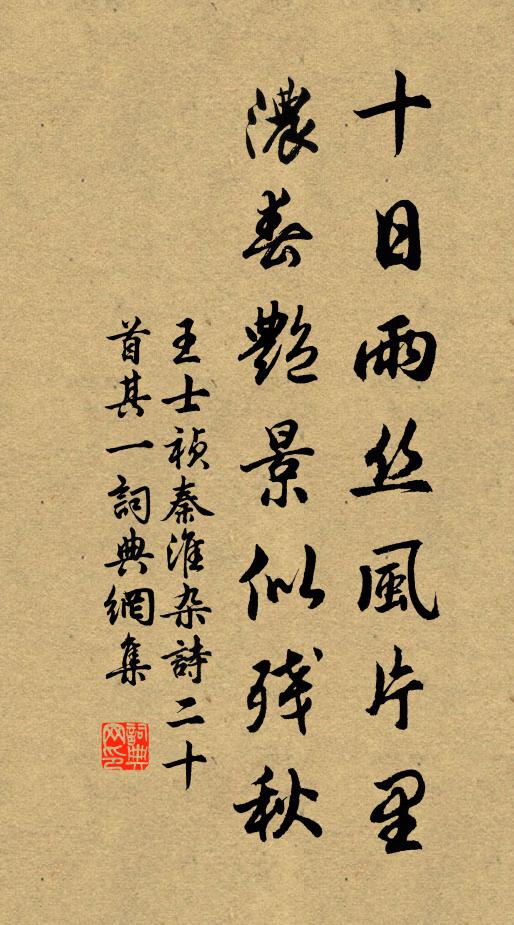 十日雨丝風片里
濃春艷景似残秋
王士祯秦淮杂詩二十
首其一詞典網集
詞典網印